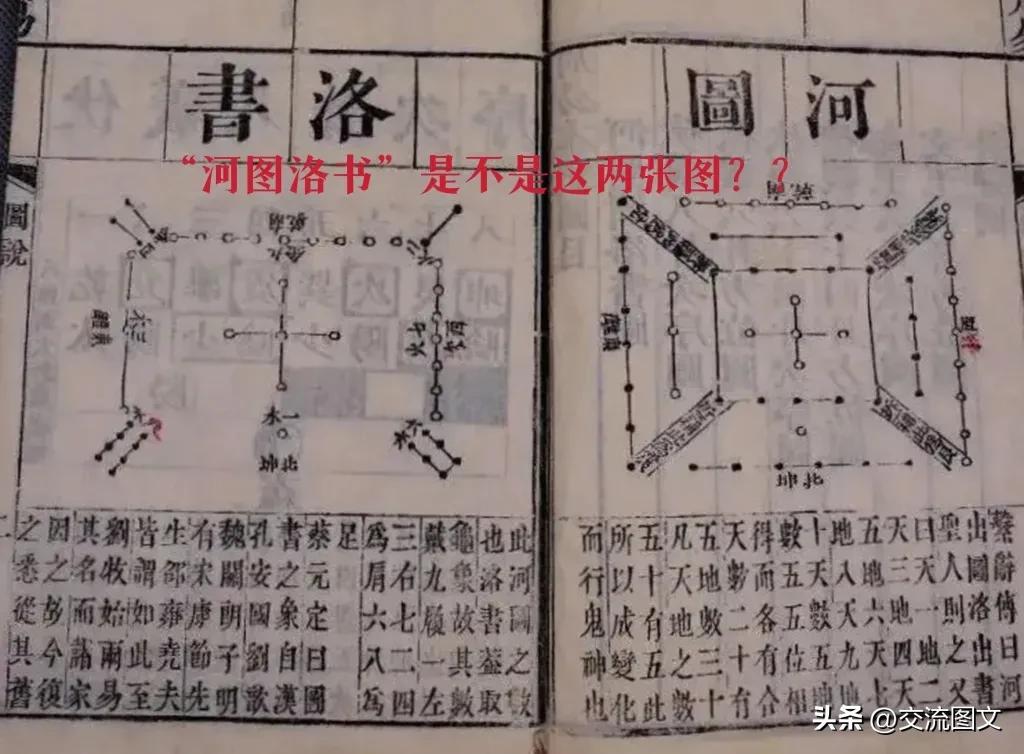 河圖
洛書
“河图洛书”是不是这两张图？？
乾南
坤北
繫辭傳曰河
出圖洛出書
聖人則之又
曰天一地二
天三地四天
五地六天七
地八天九地
十天數五地
數五五位相
得而各有合
天數二十有
五地數三十
凡天地之數
五十有五此
所以成變化
而行鬼神也
乾南
九金
一水
坤北
此河圖之數
也洛書蓋取
龜象故其數
戴九履一左
三右七二四
爲肩六八爲
足
蔡元定曰圖
書之象自漢
孔安國劉歆
魏關朗子明
有宋康節先
生邵雍堯夫
皆謂如此至
劉牧始兩易
其名而諸家
因之故今復
之悉從其舊
圖說
二
头条 @交流图文